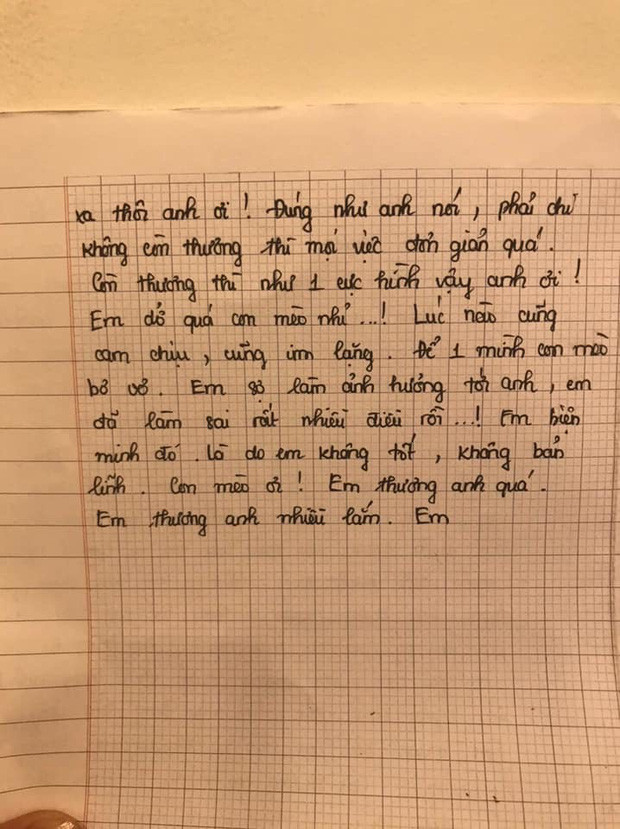 xa thôi anh ơi ! Đúng như anh nói , phải chi
không còn thương thì mọi việc đơn giản quá .
Còn thương thì như 1 cực hình vậy anh ơi !
Em dở quá con mèo nhỉ ...! Lúc nào cũng
cam chịu , cũng im lặng . Để 1 mình con mèo
bơ vơ . Em sợ làm ảnh hưởng tới anh , em
đã làm sai rất nhiều điều rồi ...! Em biện
minh đó . Là do em không tốt , không bản
lĩnh . Con mèo ơi ! Em thương anh quá .
Em thương anh nhiều lắm . Em